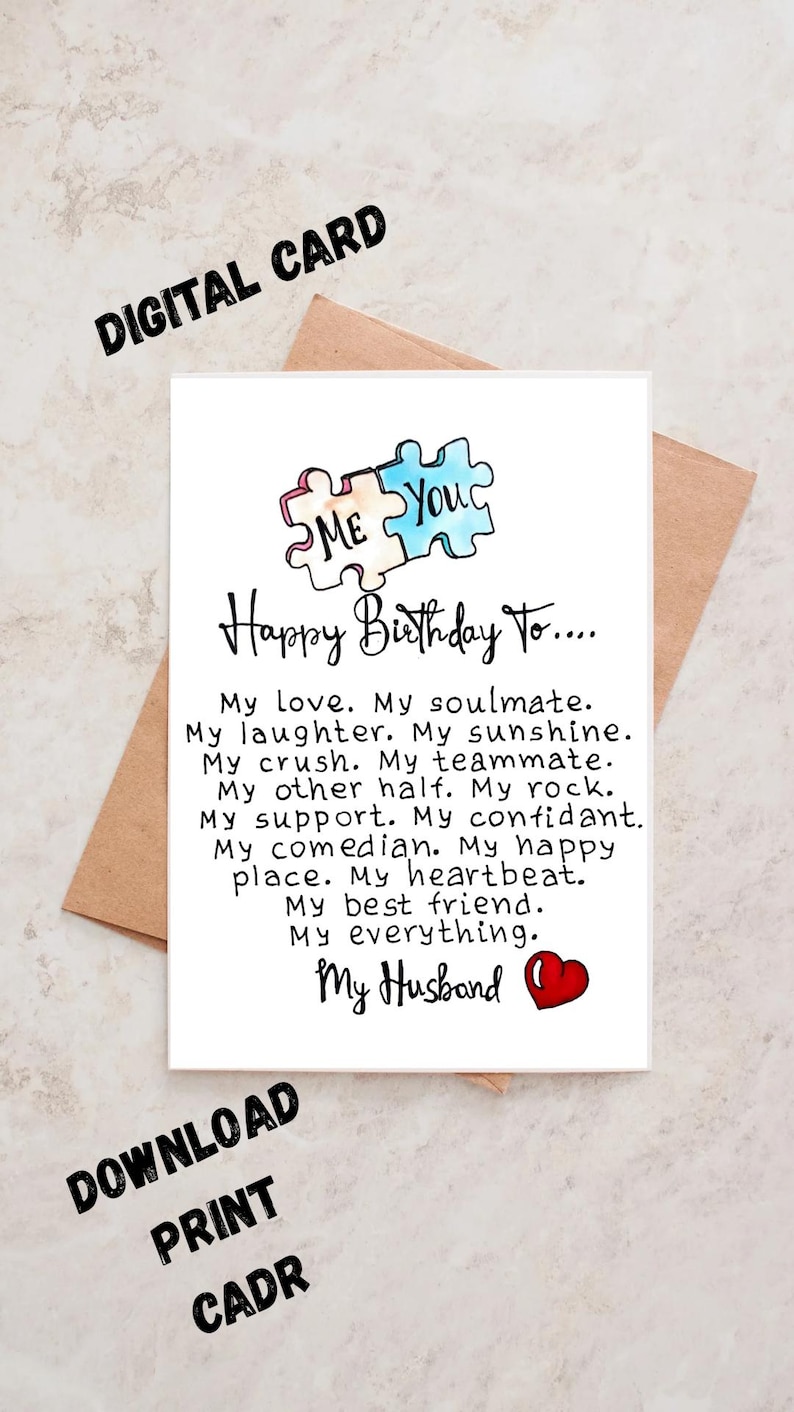 DIGITAL CARD
ME
YOU
Happy Birthday To....
My love. My soulmate.
My laughter. My sunshine.
My crush. My teammate.
My other half. My rock.
My support. My confidant.
My comedian. My happy
place. My heartbeat.
My best friend.
My everything.
My Husband
DOWNLOAD
PRINT
CADR